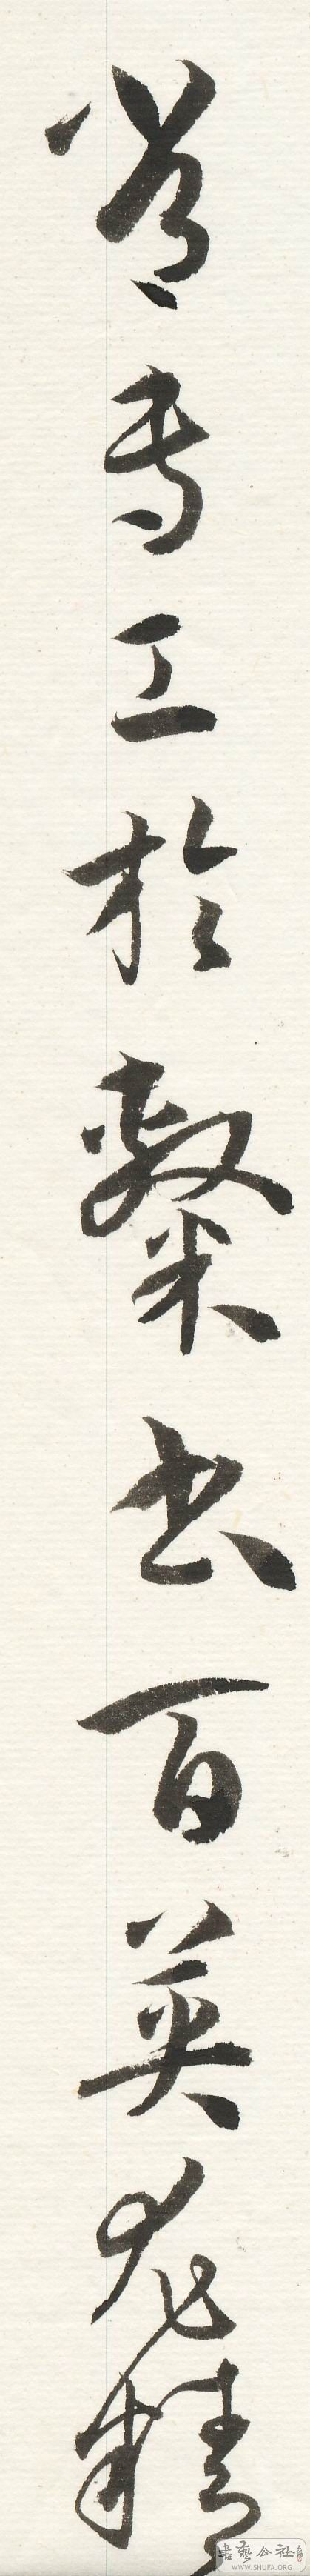 常專工於隸書百英尤精
書藝公社
WWW.SHUFA.ORG